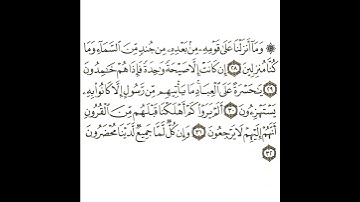 ۞ وَمَآ أَنزَلْنَا عَلَىٰ قَوْمِهِۦ مِنۢ بَعْدِهِۦ مِن جُندٍ مِّنَ ٱلسَّمَآءِ وَمَا
كُنَّا مُنزِلِينَ ٢٨ إِن كَانَتْ إِلَّا صَيْحَةً وَٰحِدَةً فَإِذَا هُمْ خَٰمِدُونَ
٢٩ يَٰحَسْرَةً عَلَى ٱلْعِبَادِ مَا يَأْتِيهِم مِّن رَّسُولٍ إِلَّا كَانُوا۟ بِهِۦ
يَسْتَهْزِءُونَ ٣٠ أَلَمْ يَرَوْا۟ كَمْ أَهْلَكْنَا قَبْلَهُم مِّنَ ٱلْقُرُونِ
أَنَّهُمْ إِلَيْهِمْ لَا يَرْجِعُونَ ٣١ وَإِن كُلٌّ لَّمَّا جَمِيعٌ لَّدَيْنَا مُحْضَرُونَ
٣٢